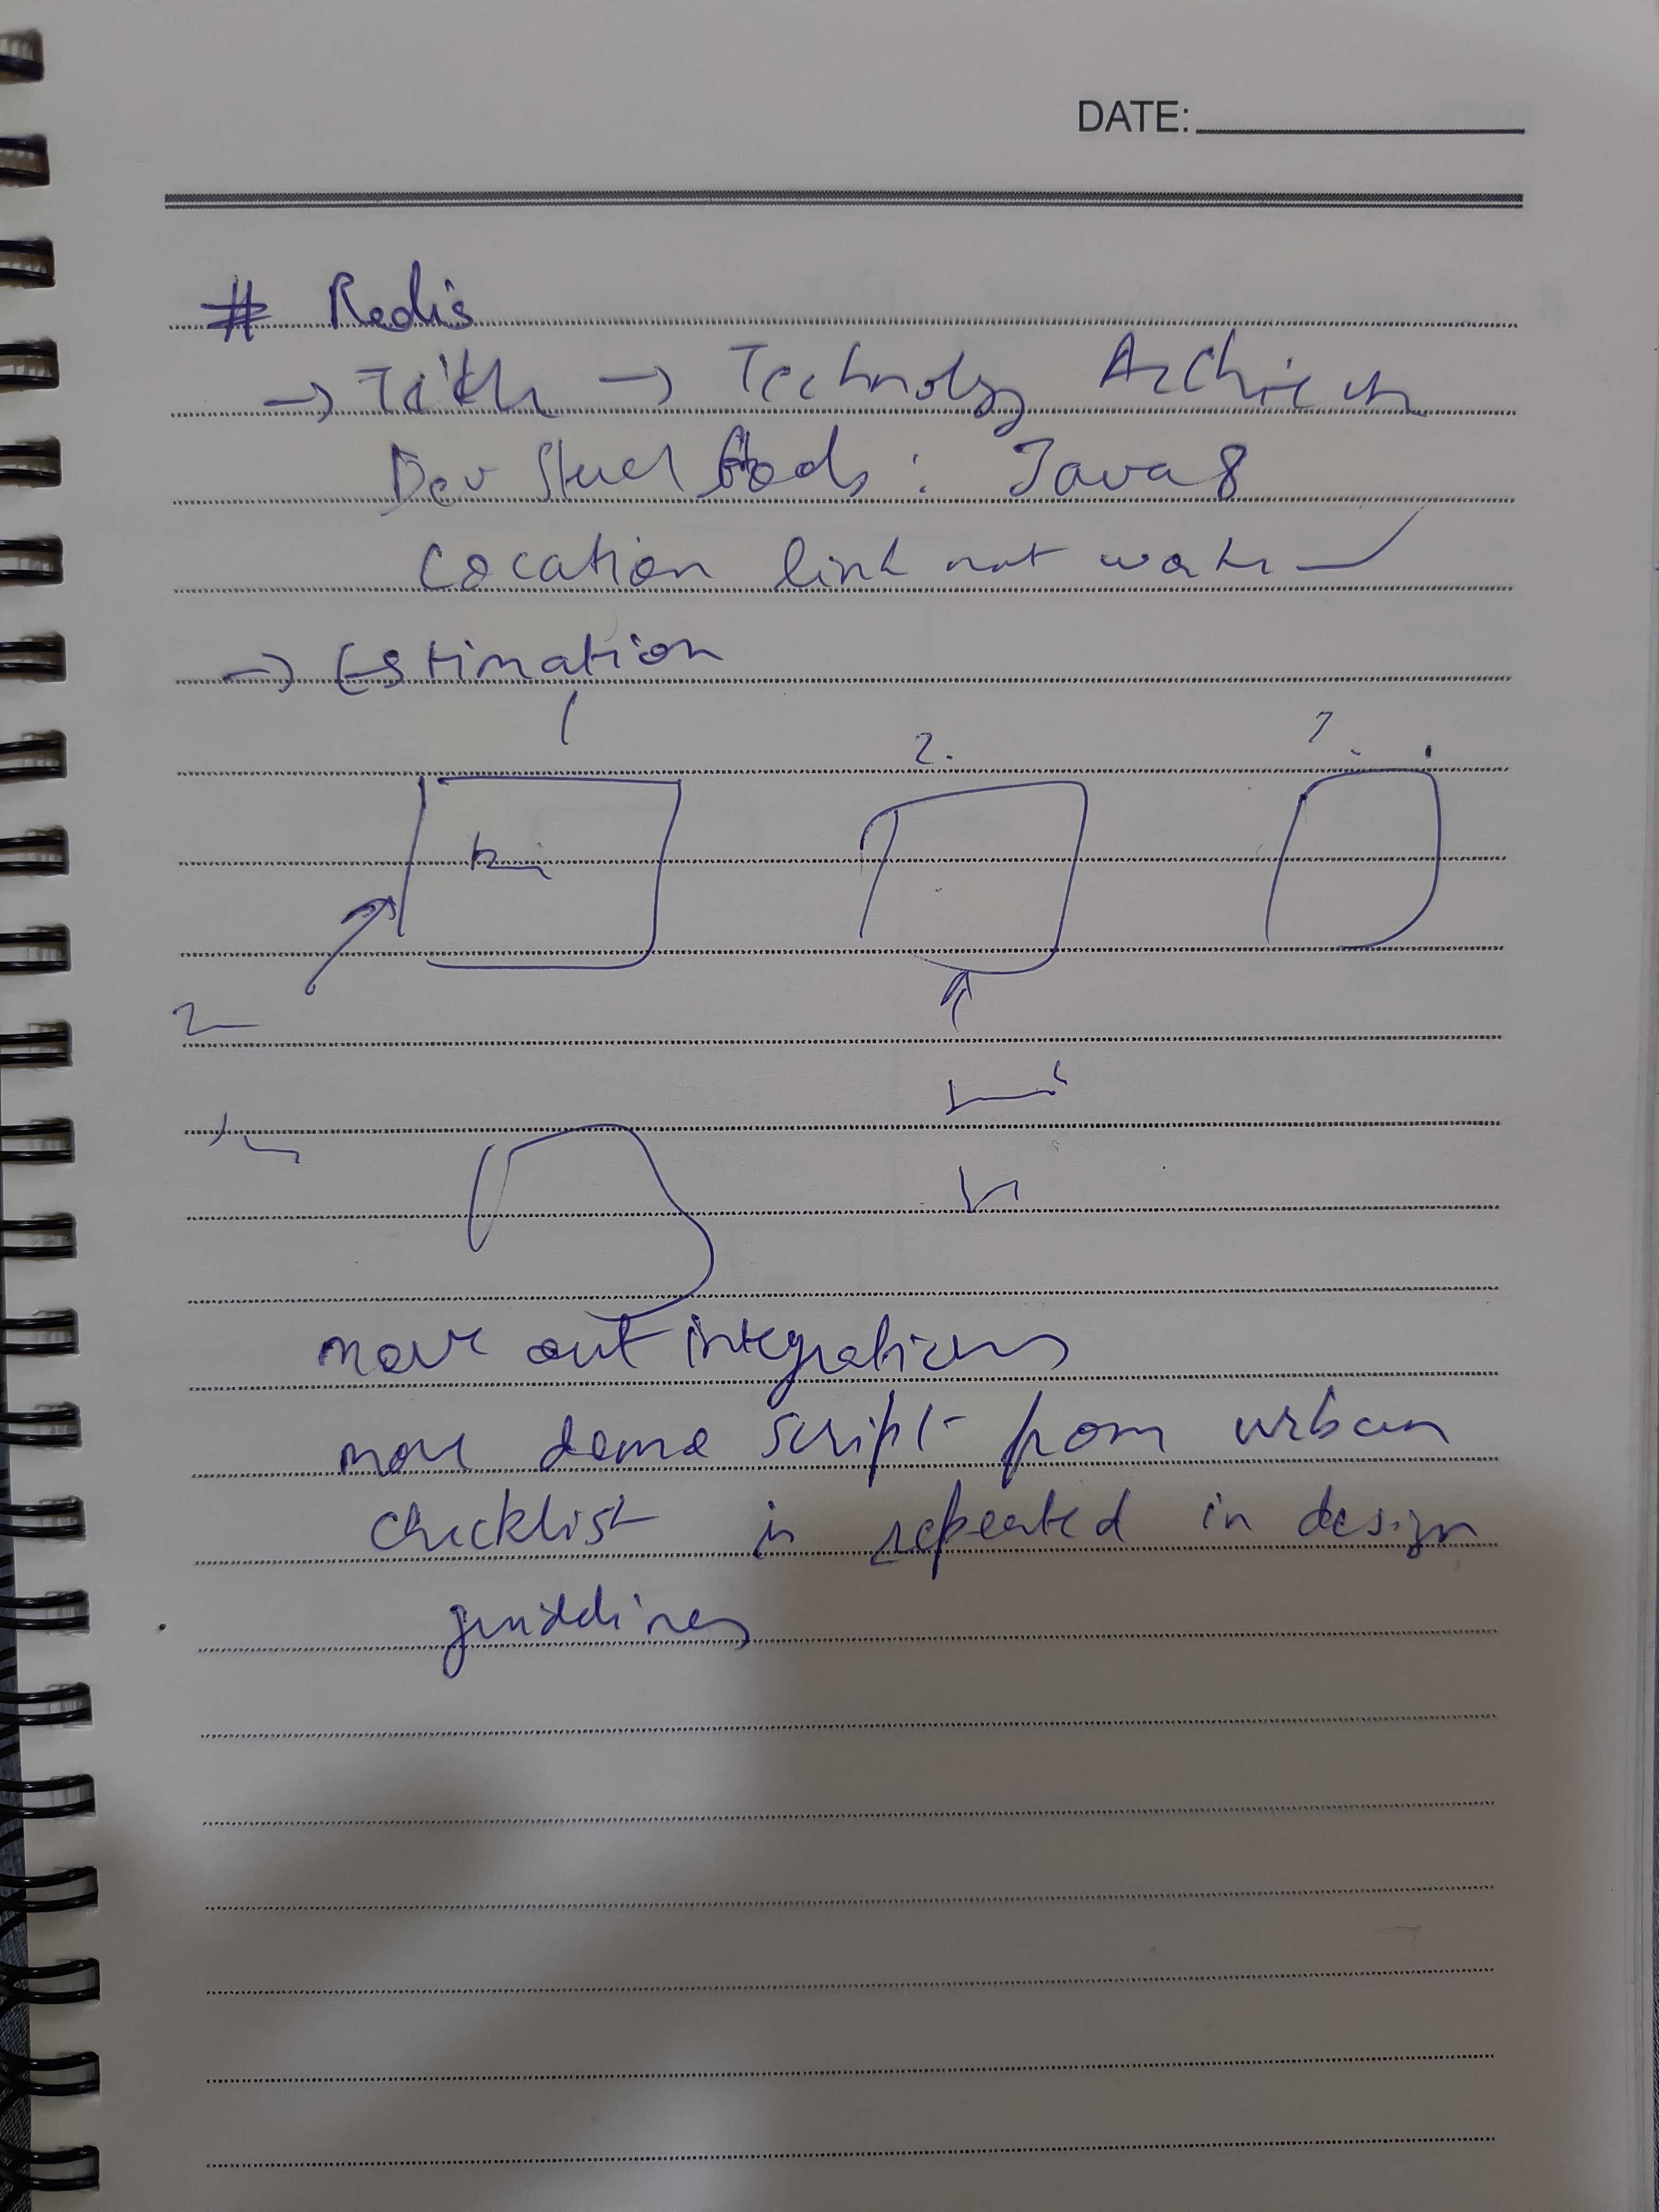 DATE:
# Redis
→ Title → Technology Architect
Dev : Java 8
Location link not
→ Estimation
1 2.
move out integrations
move demo script from urban
checklist is repeated in design
guidelines